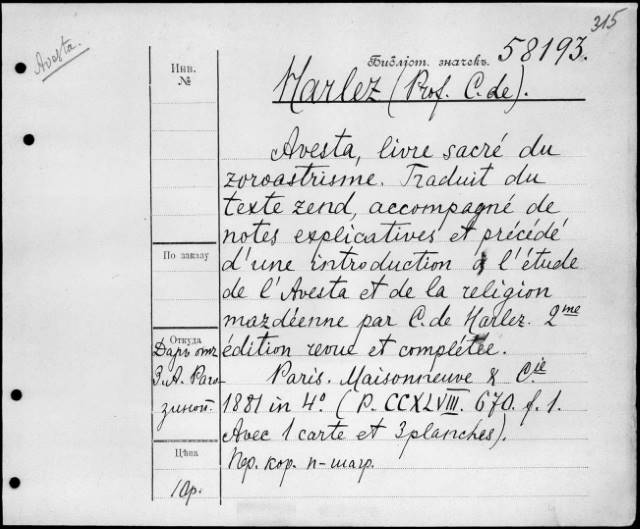 315
Avesta.
Библіот. значекъ. 58193.
Инв.
№
Harlez (Prof. C. de).
Avesta, livre sacré du
zoroastrisme. Traduit du
texte zend, accompagné de
notes explicatives et précédé
По заказу
d'une introduction à l'étude
de l'Avesta et de la religion
mazdéenne par C. de Harlez. 2me
Откуда
Даръ отъ
édition revue et complétée.
З. А. Раго-
Paris. Maisonneuve & Cie
зиной.
1881 in 4º. (P. CCXLVIII. 670. f. 1.
Avec 1 carte et 3 planches).
Цѣна
Пр. кор. п-шагр.